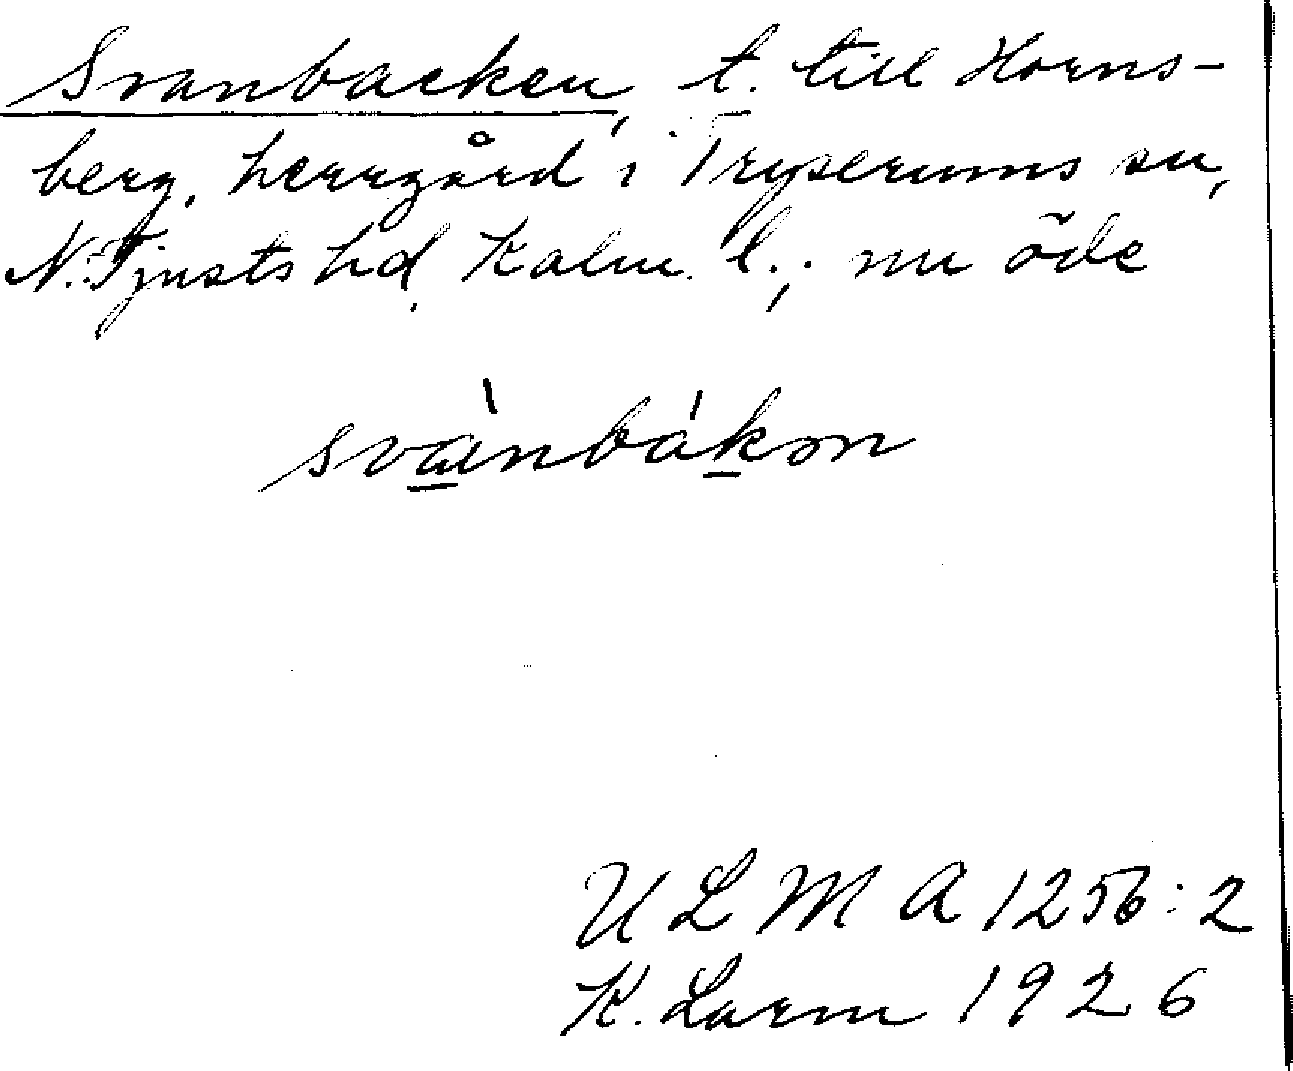 Svanbacken, t. till Horns-
berg, herrgård i Tryserums sn,
N. Tjusts hd, Kalm. l.; nu öde
svànbákən
U L M A 1256:2
K. Larm 1926